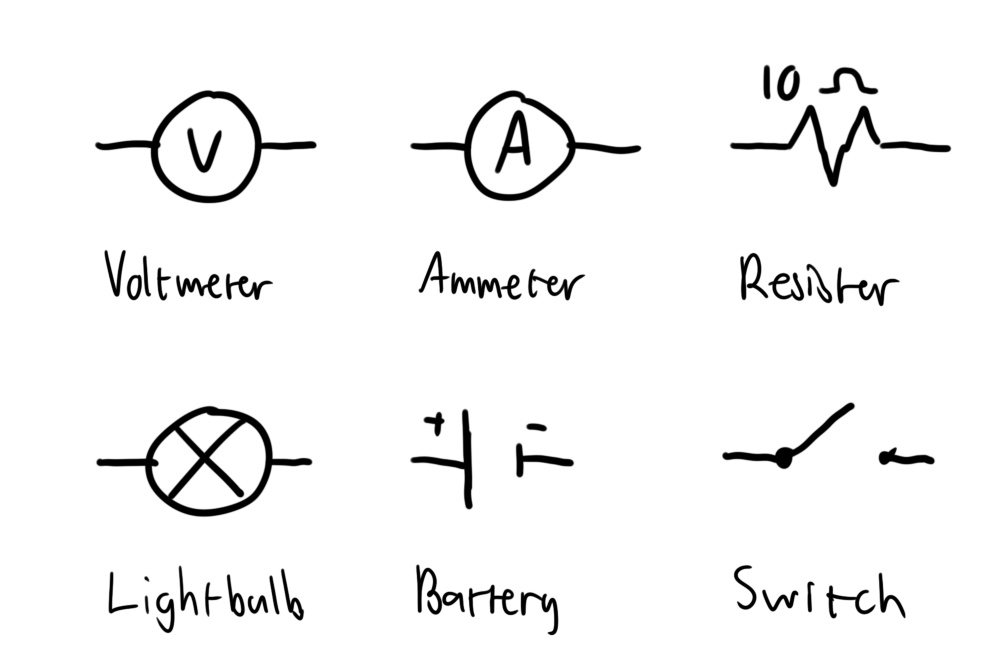 10 Ω
V
A
Voltmeter
Ammeter
Resister
+
-
Lightbulb
Battery
Switch